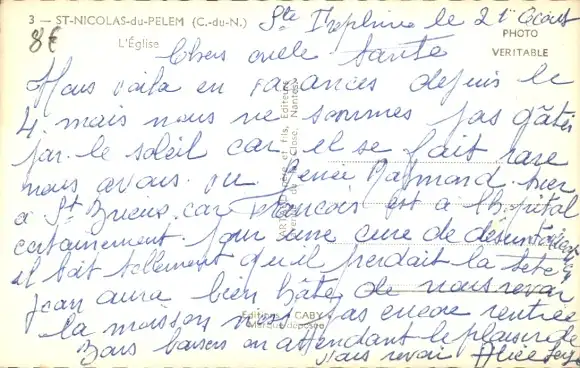 3 — ST-NICOLAS-du-PELEM (C.-du-N.)
L'Église
PHOTO
VERITABLE
8€
Ste Tréphine le 21 Août
Chers oncle tante
Nous voila en vacances depuis le
4. mais nous ne sommes pas gâtés
par le soleil car il se fait rare
nous avons vu Renée Raymond hier
à St Brieuc car François est a l'hopital
certainement pour une cure de désintoxication
il boit tellement qu'il perdait la tete
Jean aura bien hâte de nous revoir
la moisson n'est pas encore rentrée
Bons baisers en attendant le plaisir de
vous revoir Alice
Editions GABY
Marque déposée
et fils, Editeurs
Nantes